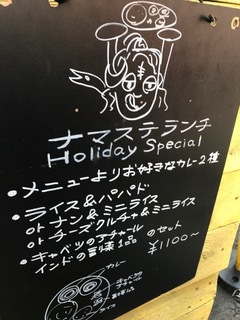 ナマステランチ
Holiday Special
・メニューよりお好きなカレー2種
・ライス&パパド
or ナン&ミニライス
or チーズクルチャ&ミニライス
・キャベツのアチャール
インドの副味1品 のセット
¥1100～
カレー
キャベツの
アチャール
ライス